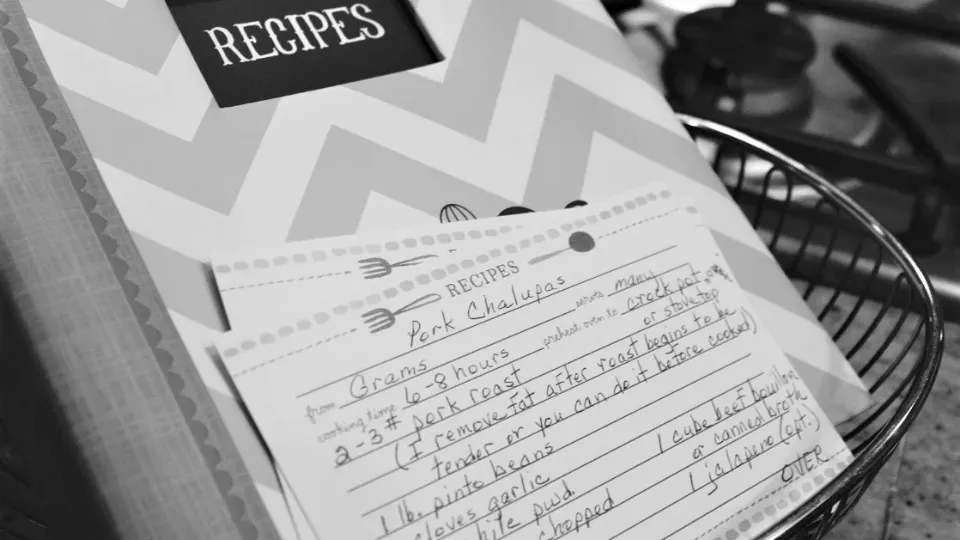 RECIPES
RECIPES
Pork Chalupas
from Grams serves many
cooking time 6-8 hours preheat oven to crock pot oven
or stove top
2-3 # pork roast
(I remove fat after roast begins to be
tender or you can do it before cooked)
1 lb. pinto beans
cloves garlic 1 cube beef bouillon
or canned broth
pwd 1 jalapeno (opt.)
chopped
OVER